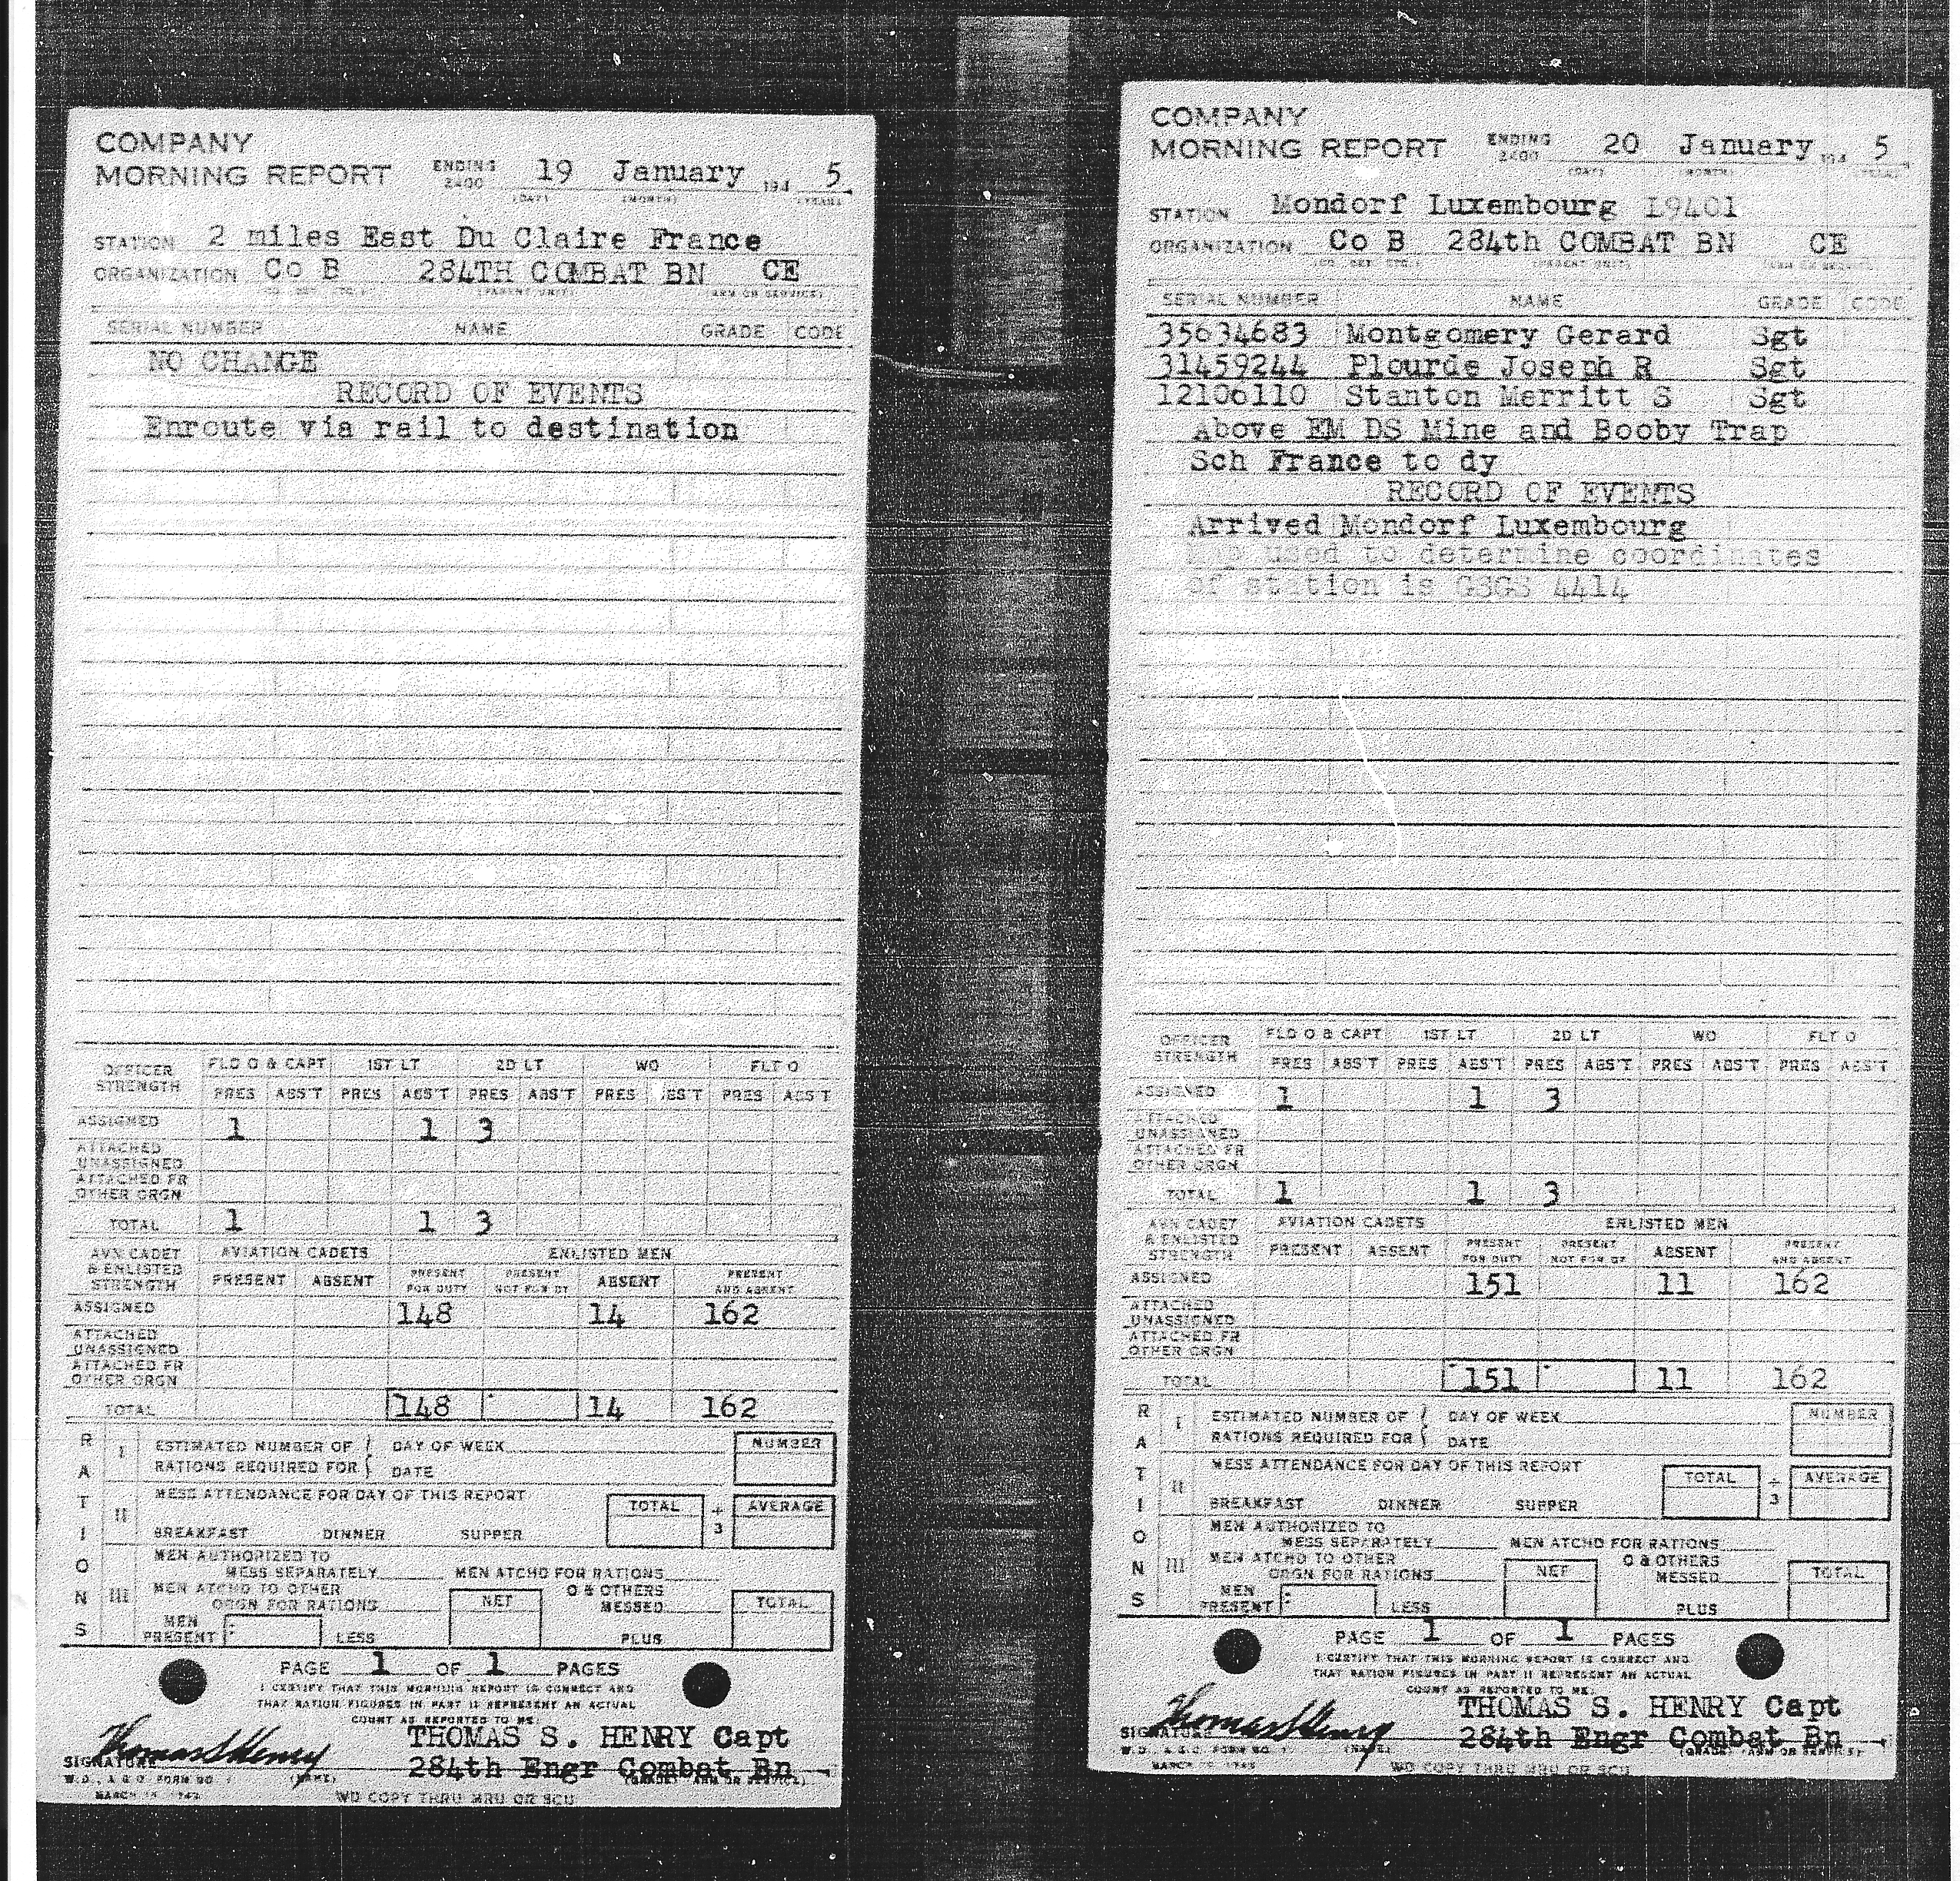 COMPANY
MORNING REPORT ENDING 2400 19 January 194 5
(DAY) (MONTH) (YEAR)
STATION 2 miles East Du Claire France
ORGANIZATION Co B 284TH COMBAT BN CE
(PARENT UNIT) (ARM OR SERVICE)
SERIAL NUMBER NAME GRADE CODE
NO CHANGE
RECORD OF EVENTS
Enroute via rail to destination
OFFICER STRENGTH FLD O & CAPT 1ST LT 2D LT WO FLT O
PRES ABS'T PRES ABS'T PRES ABS'T PRES ABS'T PRES ABS'T
ASSIGNED 1 1 3
ATTACHED UNASSIGNED
ATTACHED FR OTHER ORGN
TOTAL 1 1 3
AVN CADET & ENLISTED STRENGTH AVIATION CADETS ENLISTED MEN
PRESENT ABSENT PRESENT FOR DUTY PRESENT NOT FOR DY ABSENT PRESENT AND ABSENT
ASSIGNED 148 14 162
ATTACHED UNASSIGNED
ATTACHED FR OTHER ORGN
TOTAL 148 14 162
RATIONS
I ESTIMATED NUMBER OF DAY OF WEEK NUMBER
RATIONS REQUIRED FOR DATE
II MESS ATTENDANCE FOR DAY OF THIS REPORT TOTAL ÷ 3 AVERAGE
BREAKFAST DINNER SUPPER
III MEN AUTHORIZED TO
MESS SEPARATELY MEN ATCHD FOR RATIONS
MEN ATCHD TO OTHER NET O & OTHERS
ORGN FOR RATIONS MESSED TOTAL
MEN PRESENT LESS PLUS
PAGE 1 OF 1 PAGES
I CERTIFY THAT THIS MORNING REPORT IS CORRECT AND
THAT RATION FIGURES IN PART II REPRESENT AN ACTUAL
COUNT AS REPORTED TO ME.
THOMAS S. HENRY Capt
SIGNATURE Thomas S Henry 284th Engr Combat Bn
W.D., A.G.O. FORM NO. 1 (NAME) (GRADE) (ARM OR SERVICE)
WD COPY THRU MRU OR SCU
COMPANY
MORNING REPORT ENDING 2400 20 January 194 5
(DAY) (MONTH) (YEAR)
STATION Mondorf Luxembourg L9401
ORGANIZATION Co B 284th COMBAT BN CE
(PARENT UNIT) (ARM OR SERVICE)
SERIAL NUMBER NAME GRADE CODE
35634683 Montgomery Gerard Sgt
31459244 Plourde Joseph R Sgt
12106110 Stanton Merritt S Sgt
Above EM DS Mine and Booby Trap
Sch France to dy
RECORD OF EVENTS
Arrived Mondorf Luxembourg
Map used to determine coordinates
of station is GSGS 4414
OFFICER STRENGTH FLD O & CAPT 1ST LT 2D LT WO FLT O
PRES ABS'T PRES ABS'T PRES ABS'T PRES ABS'T PRES ABS'T
ASSIGNED 1 1 3
ATTACHED UNASSIGNED
ATTACHED FR OTHER ORGN
TOTAL 1 1 3
AVN CADET & ENLISTED STRENGTH AVIATION CADETS ENLISTED MEN
PRESENT ABSENT PRESENT FOR DUTY PRESENT NOT FOR DY ABSENT PRESENT AND ABSENT
ASSIGNED 151 11 162
ATTACHED UNASSIGNED
ATTACHED FR OTHER ORGN
TOTAL 151 11 162
RATIONS
I ESTIMATED NUMBER OF DAY OF WEEK NUMBER
RATIONS REQUIRED FOR DATE
II MESS ATTENDANCE FOR DAY OF THIS REPORT TOTAL ÷ 3 AVERAGE
BREAKFAST DINNER SUPPER
III MEN AUTHORIZED TO
MESS SEPARATELY MEN ATCHD FOR RATIONS
MEN ATCHD TO OTHER NET O & OTHERS
ORGN FOR RATIONS MESSED TOTAL
MEN PRESENT LESS PLUS
PAGE 1 OF 1 PAGES
I CERTIFY THAT THIS MORNING REPORT IS CORRECT AND
THAT RATION FIGURES IN PART II REPRESENT AN ACTUAL
COUNT AS REPORTED TO ME.
THOMAS S. HENRY Capt
SIGNATURE Thomas S Henry 284th Engr Combat Bn
W.D., A.G.O. FORM NO. 1 (NAME) (GRADE) (ARM OR SERVICE)
WD COPY THRU MRU OR SCU